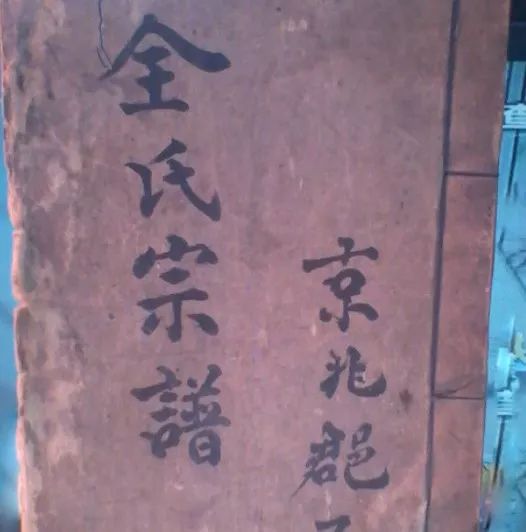 京兆郡
全氏宗譜